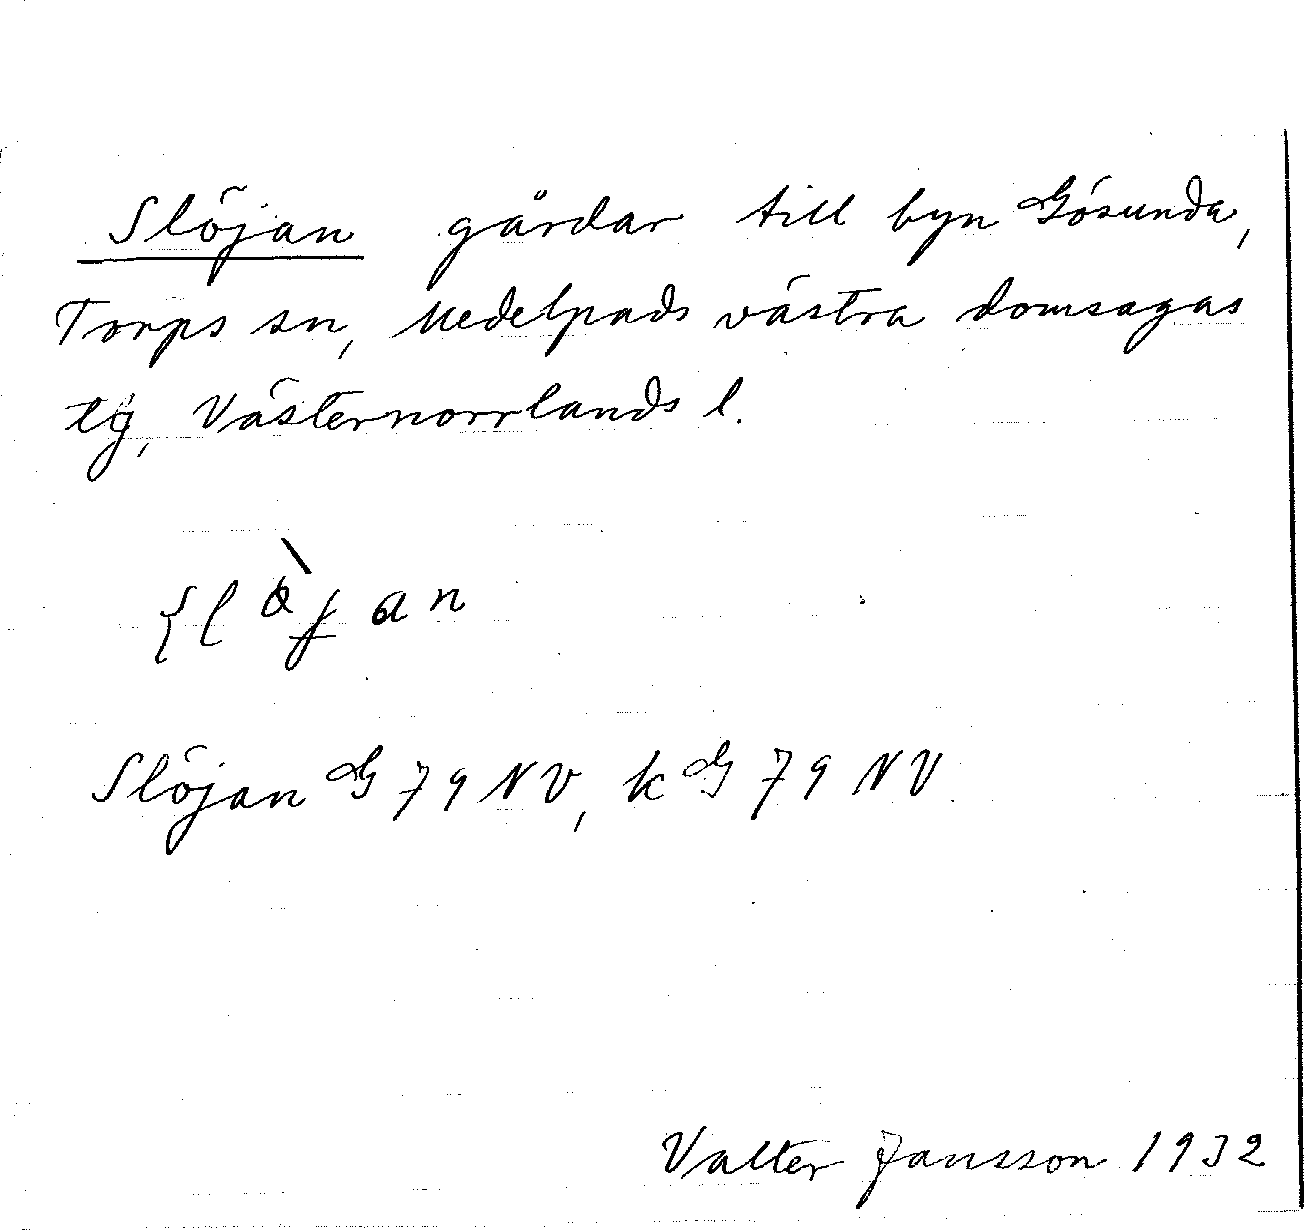 Slöjan gårdar till byn Gösunda,
Torps sn, Medelpads västra domsagas
tg, Västernorrlands l.
Slöjan G 79 NV, k G 79 NV
Valter Jansson 1932